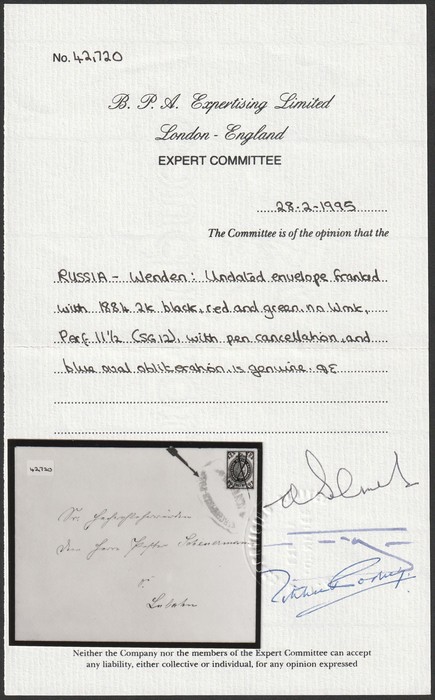 No. 42,720
B. P. A. Expertising Limited
London - England
EXPERT COMMITTEE
28-2-1995
The Committee is of the opinion that the
RUSSIA - Wenden: Undated envelope franked
with 1884 2k black, red and green, no Wmk,
Perf. 11½ (SG12), with pen cancellation, and
blue oval obliteration, is genuine.
42,720
Sr.
Den Herrn Pastor
Neither the Company nor the members of the Expert Committee can accept
any liability, either collective or individual, for any opinion expressed